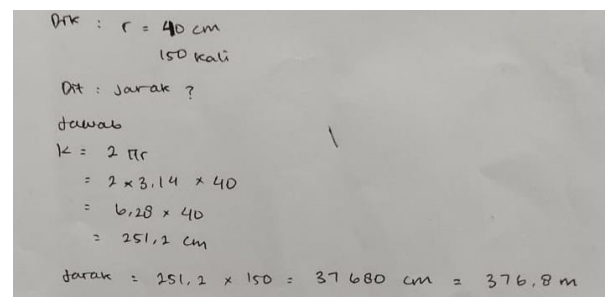 Dik : r = 40 cm
150 kali
Dit : Jarak ?
Jawab
K = 2 πr
= 2 × 3,14 × 40
= 6,28 × 40
= 251,2 cm
Jarak = 251,2 × 150 = 37680 cm = 376,8 m